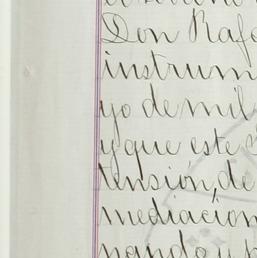 Don Rafa
instrum
yo de mil
y que este
tensión, de
mediación